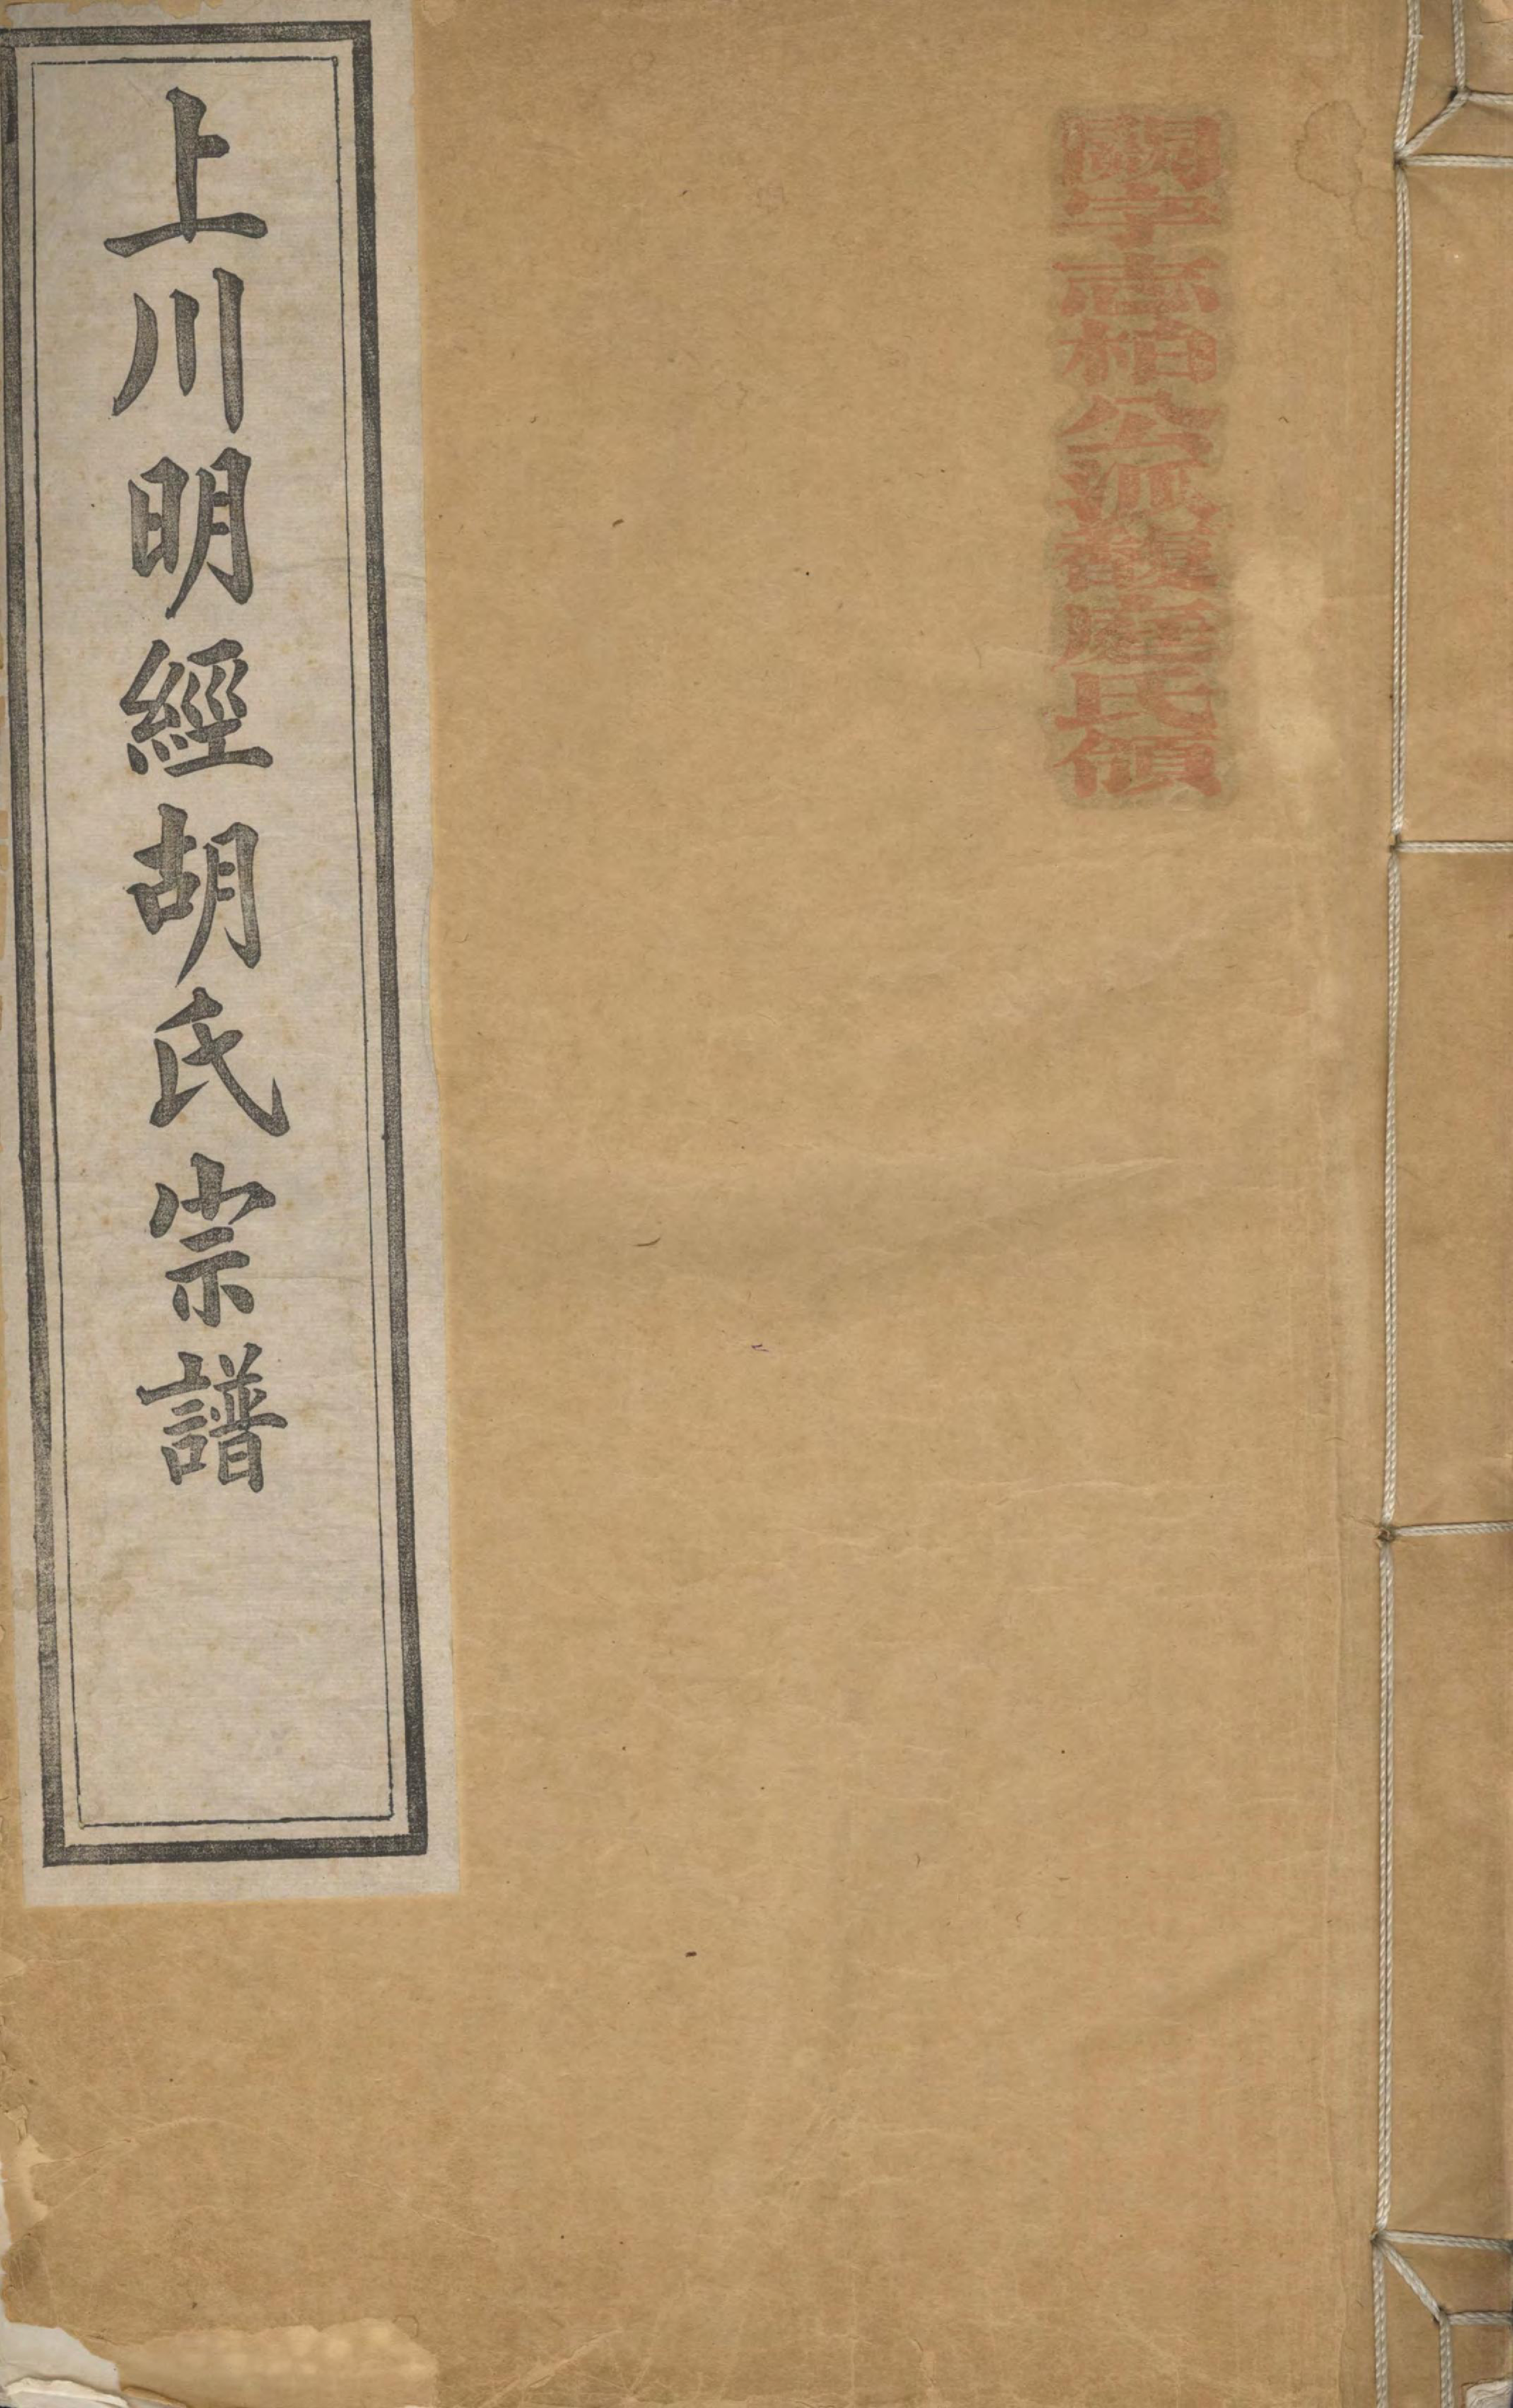 字志柏公派馥庭氏領
上川明經胡氏宗譜